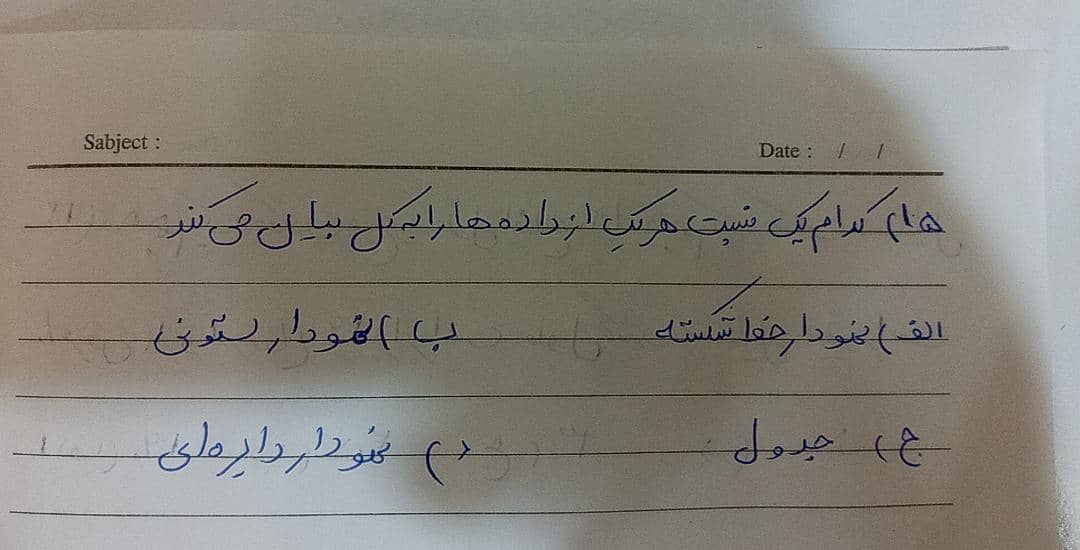 Sabject :
Date : / /
۱۵) کدام یک نسبت هر یک از داده ها را به کل بیان می کند
الف) نمودار خط شکسته ب) نمودار ستونی
ج) جدول د) نمودار دایره ای